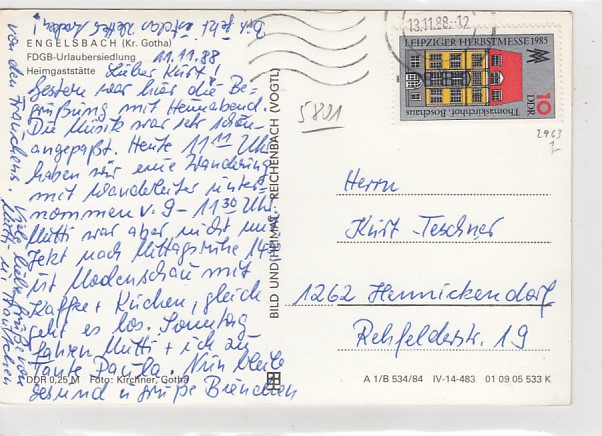 ENGELSBACH (Kr. Gotha)
FDGB-Urlaubersiedlung
Heimgaststätte
11.11.88
Lieber Kurt!
Gestern war hier die Be-
grüßung mit Heimabend.
Die Musik war sehr
angepaßt. Heute 11 11 Uhr
haben wir eine Wanderung
mit Wanderleiter unter-
nommen v. 9 - 11 30 Uhr.
Mutti war aber nicht mit
Jetzt nach Mittagsruhe 14
ist Modenschau mit
Kaffee + Kuchen, gleich
geht es los. Sonntag
fahren Mutti + ich zu
Tante Paula. Nun bleibe
gesund u. grüße Bienchen
von den Frauchens. Viele liebe Grüße von
Mutti u.
DDR 0,25 M Foto: Kirchner, Gotha
BILD UND HEIMAT REICHENBACH (VOGTL)
5891
13.11.88-12
LEIPZIGER HERBSTMESSE 1985
Thomaskirchhof, Bosehaus
10
DDR
2963
Herrn
Kurt Teschner
1262 Hennickendorf
Rehfelderstr. 19
A 1/B 534/84 IV-14-483 01 09 05 533 K